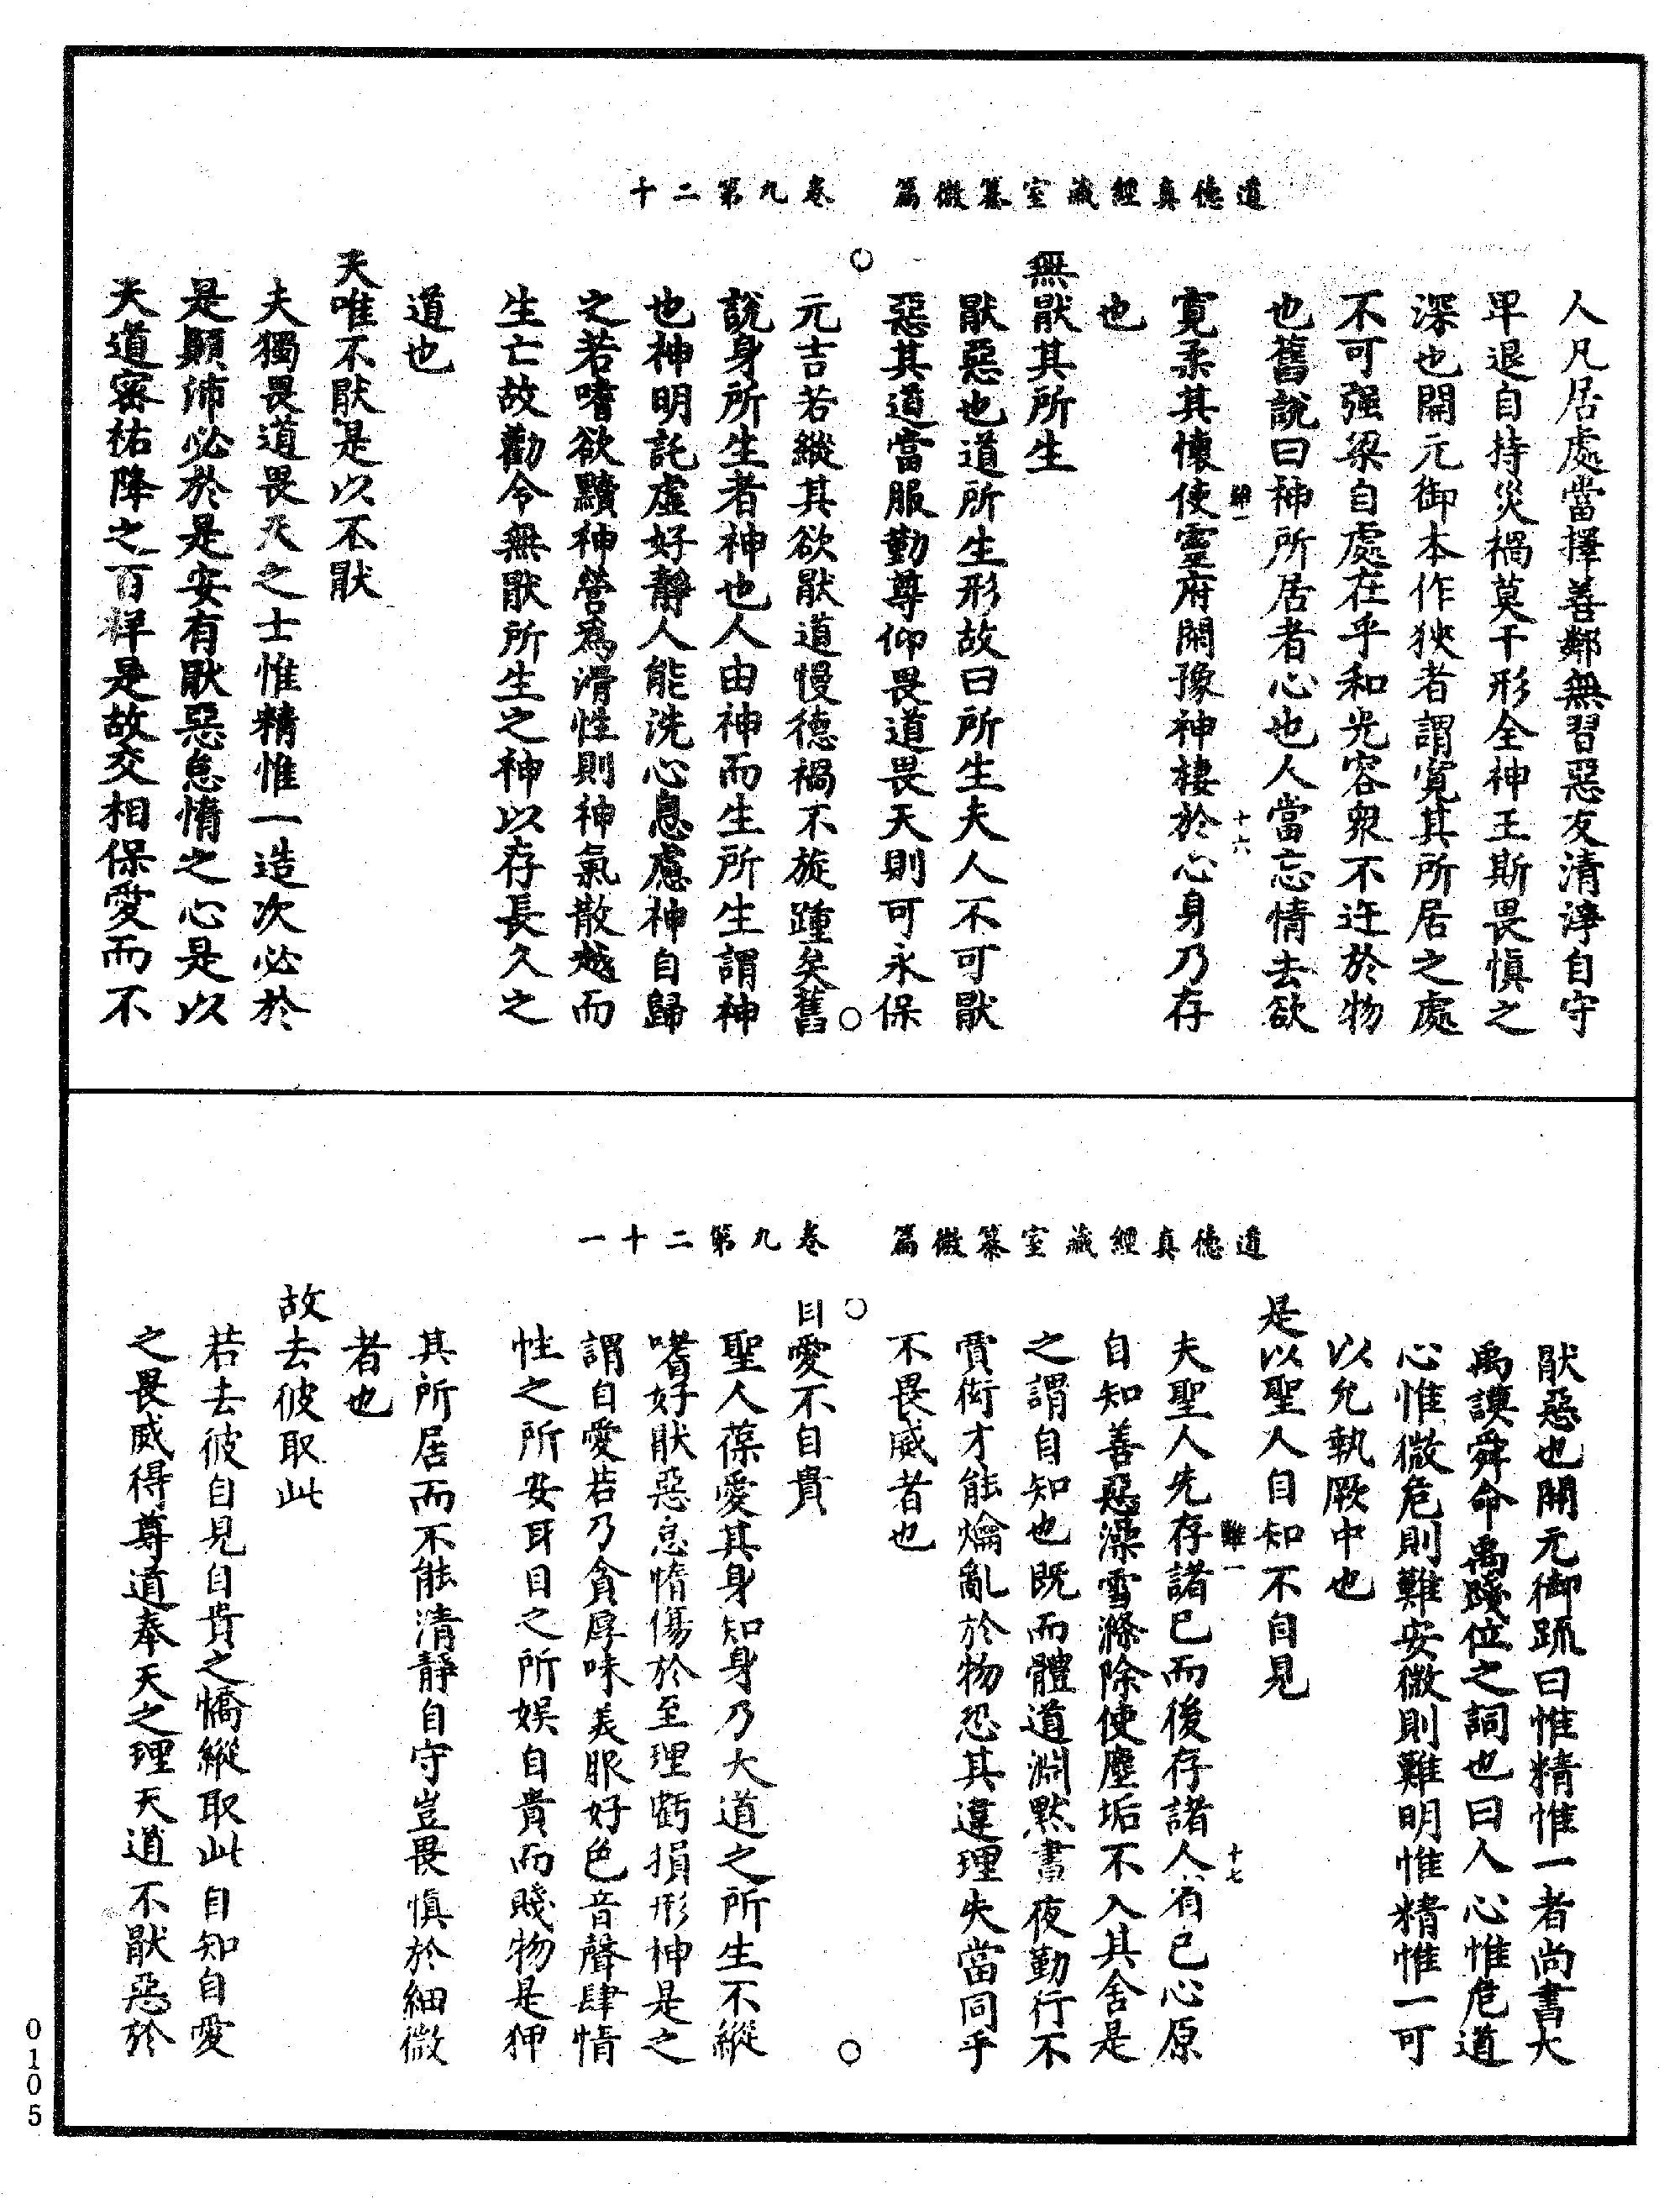 道德真經藏室纂微篇　卷九第二十
人凡居處當擇善鄰無習惡友清淨自守
卑退自持災禍莫干形全神王斯畏慎之
深也開元御本作狹者謂寬其所居之處
不可强梁自處在乎和光容衆不迕於物
也舊說曰神所居者心也人當忘情去欲
難一　十六
寛柔其懷使靈府閑豫神棲於心身乃存
也
無猒其所生
猒惡也道所生形故曰所生夫人不可猒
惡其道當服勤尊仰畏道畏天則可永保
元吉若縱其欲猒道慢德禍不旋踵矣舊
說身所生者神也人由神而生所生謂神
也神明託虛好靜人能洗心息慮神自歸
之若嗜欲黷神營爲滑性則神氣散越而
生亡故勸令無猒所生之神以存長久之
道也
夫唯不猒是以不猒
夫獨畏道畏天之士惟精惟一造次必於
是顚沛必於是安有猒惡怠惰之心是以
天道密祐降之百祥是故交相保愛而不
道德真經藏室纂微篇　卷九第二十一
猒惡也開元御疏曰惟精惟一者尚書大
禹謨舜命禹踐位之詞也曰人心惟危道
心惟微危則難安微則難明惟精惟一可
以允執厥中也
是以聖人自知不自見
難一　十七
夫聖人先存諸己而後存諸人省己心原
自知善惡澡雪滌除使塵垢不入其舍是
之謂自知也既而體道淵默晝夜勤行不
賣衒才能爚亂於物恐其違理失當同乎
不畏威者也
自愛不自貴
聖人葆愛其身知身乃大道之所生不縱
嗜好猒惡怠惰傷於至理虧損形神是之
謂自愛若乃貪厚味美服好色音聲肆情
性之所安耳目之所娱自貴而賤物是狎
其所居而不能清靜自守豈畏慎於細微
者也
故去彼取此
若去彼自見自貴之憍縱取此自知自愛
之畏威得尊道奉天之理天道不猒惡於
0105